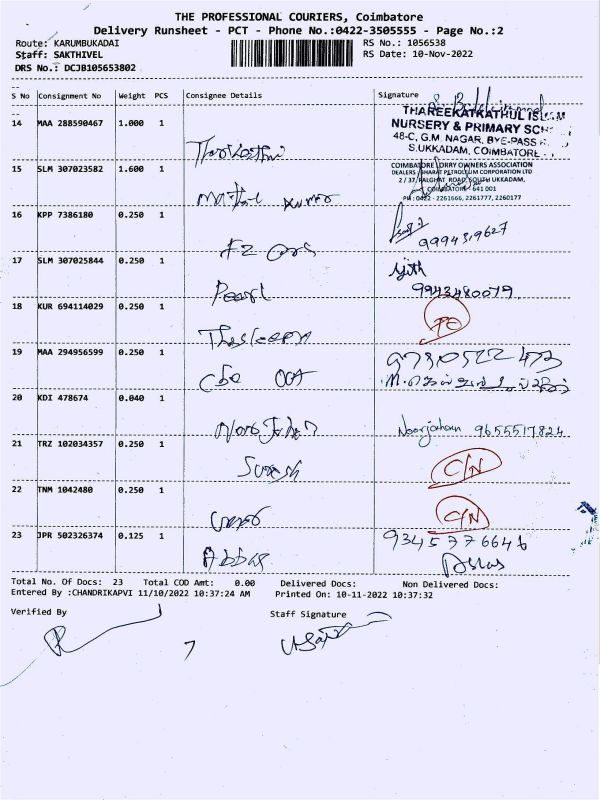 THE PROFESSIONAL COURIERS, Coimbatore
Delivery Runsheet - PCT - Phone No.:0422-3505555 - Page No.:2
Route: KARUMBUKADAI
RS No.: 1056538
Staff: SAKTHIVEL
RS Date: 10-Nov-2022
DRS No.: DCJB105653802
S No Consignment No Weight PCS Consignee Details Signature
THAREEKATKATHUL ISLAM
14 MAA 288590467 1.000 1
NURSERY & PRIMARY SCH
48-C, G.M. NAGAR, BYE-PASS
S.UKKADAM, COIMBATORE
15 SLM 307023582 1.600 1
COIMBATORE LORRY OWNERS ASSOCIATION
DEALERS : BHARAT PETROLEUM CORPORATION LTD
2 / 37, PALGHAT ROAD, SOUTH UKKADAM,
COIMBATORE - 641 001
PH : 0422 - 2261666, 2261777, 2260177
Kumar
16 KPP 7386180 0.250 1
9994319627
FZ Cars
17 SLM 307025844 0.250 1
Ajith
9943480079
Pearl
18 KUR 694114029 0.250 1
19 MAA 294956599 0.250 1
9790522473
Cbe
20 KDI 478674 0.040 1
Noorjahan 9655517824
21 TRZ 102034357 0.250 1
Suresh C/N
22 TNM 1042480 0.250 1
C/N
23 JPR 502326374 0.125 1
9345776646
Abbas
Abbas
Total No. Of Docs: 23 Total COD Amt: 0.00 Delivered Docs: Non Delivered Docs:
Entered By :CHANDRIKAPVI 11/10/2022 10:37:24 AM Printed On: 10-11-2022 10:37:32
Verified By Staff Signature